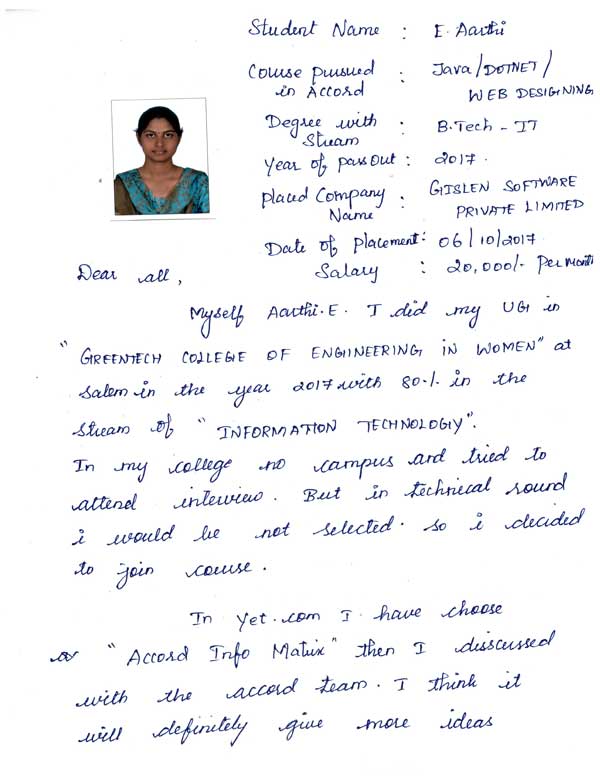 Student Name : E. Aarthi
Course pursued in Accord : Java/DOTNET/
WEB DESIGNING
Degree with Stream : B.Tech - IT
Year of passout : 2017.
Placed Company Name : GISLEN SOFTWARE
PRIVATE LIMITED
Date of placement : 06/10/2017
Salary : 20,000/- Per Month
Dear all,
Myself Aarthi.E. I did my UG in
"GREENTECH COLLEGE OF ENGINEERING IN WOMEN" at
Salem in the year 2017 with 80.% in the
Stream of "INFORMATION TECHNOLOGY".
In my college no campus and tried to
attend interview. But in technical round
i would be not selected. so i decided
to join course.
In Yet.com I have choose
"Accord Info Matrix" then I disscussed
with the accord team. I think it
will definitely give more ideas